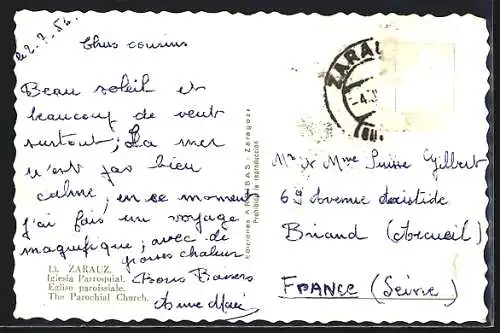 le 2.7.56.
Chers cousins
Beau soleil et
beaucoup de vent
surtout; La mer
n'est pas bien
calme, en ce moment
j'ai fais un voyage
magnifique; avec de
grosses chaleur
Bons Baisers
Anne Marie
13. ZARAUZ.
Iglesia Parroquial.
Eglise paroissiale.
The Parochial Church.
Ediciones ARRIBAS - Zaragoza
Prohibida la reproducción
ZARAUZ
Mr & Mme Gilbert
Avenue Aristide
Briand (Arcueil)
FRANCE (Seine)